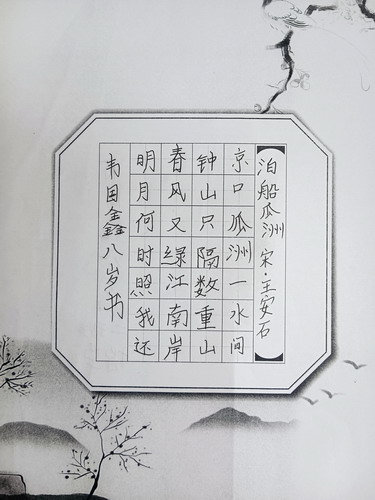 泊船瓜洲 宋·王安石
京口瓜洲一水间
钟山只隔数重山
春风又绿江南岸
明月何时照我还
韦国鑫八岁书